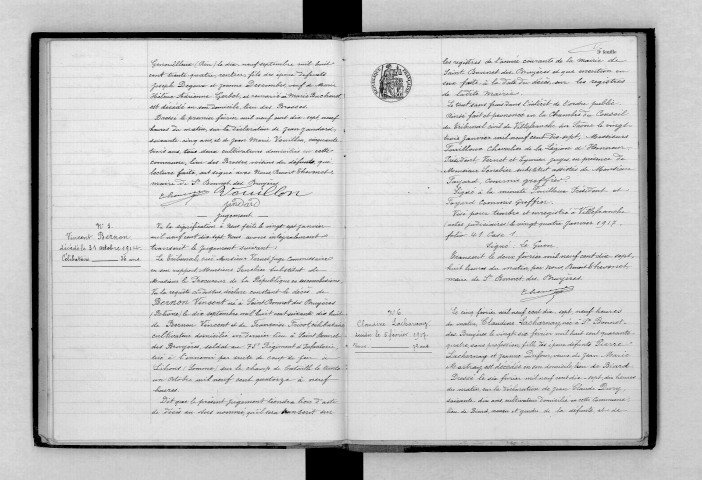 Genouilleux (Ain) le dix neuf septembre mil huit
cent trente quatre, rentier, fils des époux défunts
Joseph Degans et Jeanne Descombes veuf de Marie
Adrienne Gerbet, et remarié à Marie Buchonet
est décédé en son domicile, lieu des Brosses.
Dressé le premier février mil neuf cent dix sept neuf
heures du matin sur la déclaration de Jean Jandard
soixante cinq ans, et de Jean Marie Vouillon, cinquante
trois ans, tous deux cultivateurs domiciliés en cette
commune, lieu des Brosses, voisins du défunt, qui
lecture faite, ont signé avec Nous Benoit Chevenet
maire de St Bonnet des Bruyères
Vouillon
Jandard
Jugement
N° 5
Vincent Bernon
décédé le 31 octobre 1914
Célibataire 36 ans
Vu la signification à nous faite le vingt sept janvier
mil neuf cent dix sept nous avons intégralement
transcrit le jugement suivant:
Le tribunal, ouï Monsieur Vernet juge commissaire
en son rapport, Monsieur substitut de
Monsieur le Procureur de la République en
Vu la requête ci dessus déclare constant le décès de
Bernon Vincent né à Saint Bonnet des Bruyères
(Rhône) le dix septembre mil huit cent soixante dix huit
de Bernon Vincent et de Françoise célibataire
cultivateur domicilié en dernier lieu à Saint Bonnet
des Bruyères, soldat au Régiment d'Infanterie
tué à l'ennemi par suite de coup de feu à
Lihons (Somme) sur le champ de bataille le trente
un octobre mil neuf cent quatorze à neuf
heures.
Dit que le présent jugement tiendra lieu d'acte
de décès au sus nommé, qu'il sera transcrit sur
feuille
les registres de l'année courante de la mairie de
Saint Bonnet des Bruyères et que mention en
sera faite à la date du décès sur les registres
de ladite mairie.
Le tout sans frais dans l'intérêt de l'ordre public
Ainsi fait et prononcé en la Chambre du Conseil
du Tribunal civil de Villefranche sur Saône le vingt
trois janvier mil neuf cent dix sept, Messieurs
Pouillaux Chevalier de la Légion d'Honneur
Président Vernet et juges en présence de
Monsieur substitut assistés de Monsieur
Fayard, commis greffier.
Signé à la minute Pouillaux Président et
Fayard Commis Greffier
Visé pour timbre et enregistré à Villefranche
(actes judiciaires) le vingt quatre janvier 1917
folio 41 Case 1
Signé: Le Guen
Transcrit le deux février mil neuf cent dix sept,
huit heures du matin par nous Benoit Chevenet
maire de St Bonnet des Bruyères.
N° 6
Claudine Lacharnay
décédée le 5 février 1917
Veuve
Le cinq février mil neuf cent dix sept, neuf heures
du matin, Claudine Lacharnay, née à St Bonnet
des Bruyères le vingt six février mil huit cent quarante
quatre, sans profession fille des époux défunts Pierre
Lacharnay et Jeanne Dufour, veuve de Jean Marie
est décédée en son domicile, lieu de Biard
Dressé le six février mil neuf cent dix sept, dix heures
du matin sur la déclaration de Jean Claude
soixante dix ans cultivateur domicilié en cette Commune
lieu de Biard, voisin et gendre de la défunte, et de